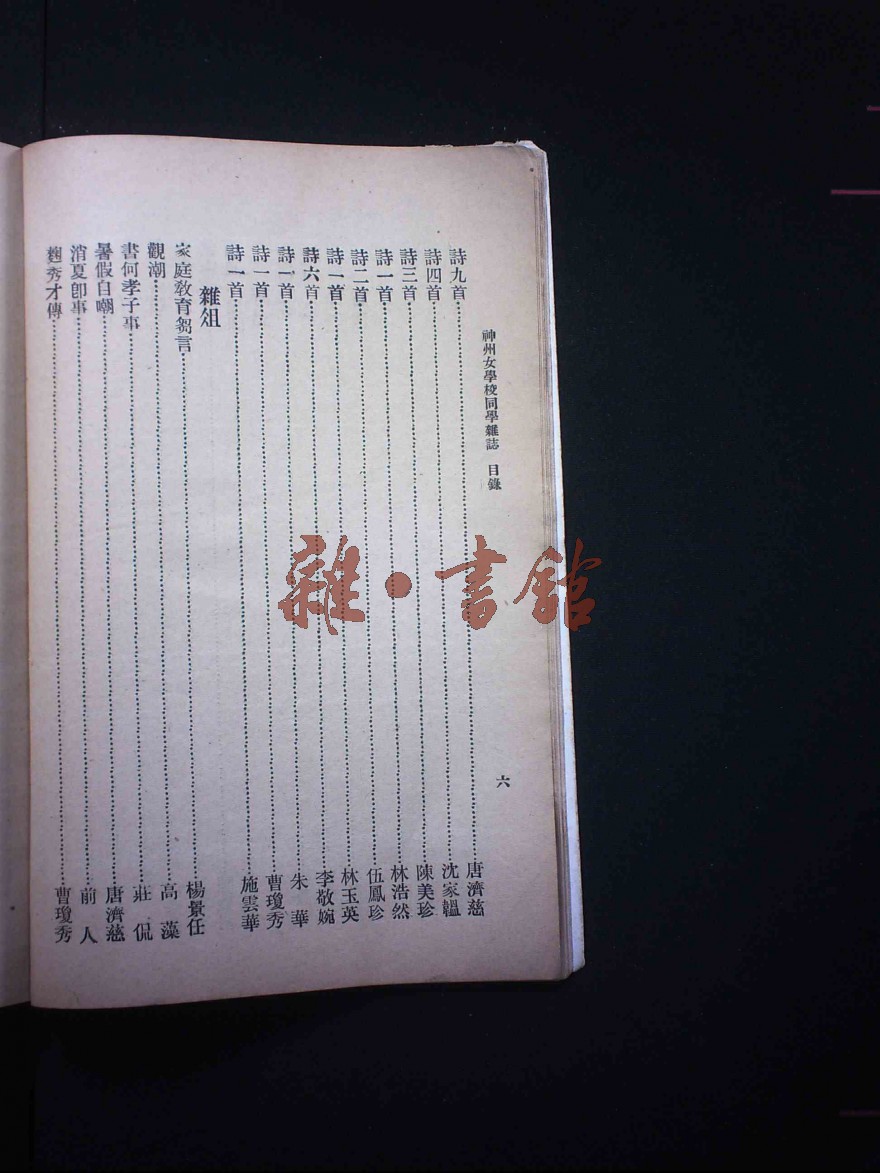 神州女學校同學雜誌 目錄 六
詩九首 唐濟慈
詩四首 沈家韞
詩三首 陳美珍
詩一首 林浩然
詩二首 伍鳳珍
詩一首 林玉英
詩六首 李敬婉
詩一首 朱華
詩一首 曹瓊秀
詩一首 施雲華
雜俎
家庭敎育芻言 楊景任
觀潮 高藻
書何孝子事 莊侃
暑假自嘲 唐濟慈
消夏卽事 前人
麴秀才傳 曹瓊秀
雜·書館